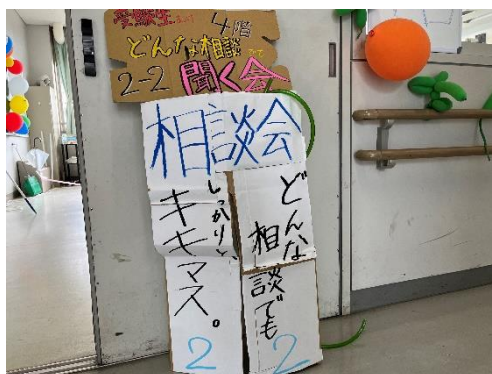 受験生
4階
どんな相談
2-2 聞く会
相談会
どんな
相談でも
しっかりと、
キキマス。
2
2